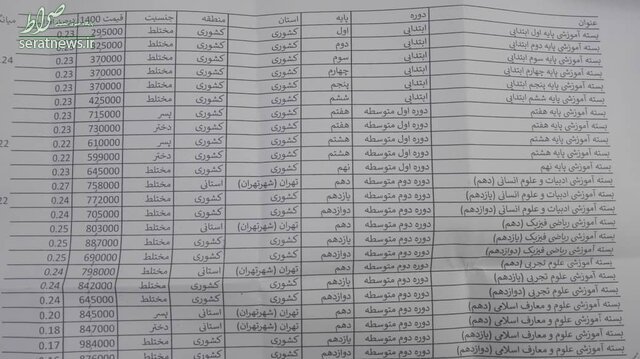 صراط
seratnews.ir
عنوان دوره پایه استان منطقه جنسیت قیمت 1400
بسته آموزشی پایه اول ابتدایی ابتدایی اول کشوری کشوری مختلط 295000 0.23
بسته آموزشی پایه دوم ابتدایی ابتدایی دوم کشوری کشوری مختلط
بسته آموزشی پایه سوم ابتدایی ابتدایی سوم کشوری کشوری مختلط 370000 0.23
بسته آموزشی پایه چهارم ابتدایی ابتدایی چهارم کشوری کشوری مختلط 370000 0.23
بسته آموزشی پایه پنجم ابتدایی ابتدایی پنجم کشوری کشوری مختلط 370000 0.23
بسته آموزشی پایه ششم ابتدایی ابتدایی ششم کشوری کشوری مختلط 425000 0.23
بسته آموزشی پایه هفتم دوره اول متوسطه هفتم کشوری کشوری پسر 715000 0.23
بسته آموزشی پایه هفتم دوره اول متوسطه هفتم کشوری کشوری دختر 730000 0.23
بسته آموزشی پایه هشتم دوره اول متوسطه هشتم کشوری کشوری پسر 610000 0.22
بسته آموزشی پایه هشتم دوره اول متوسطه هشتم کشوری کشوری دختر 599000 0.22
بسته آموزشی پایه نهم دوره اول متوسطه نهم کشوری کشوری مختلط 645000 0.23
بسته آموزشی ادبیات و علوم انسانی (دهم) دوره دوم متوسطه دهم تهران (شهرتهران) استانی مختلط 758000 0.27
بسته آموزشی ادبیات و علوم انسانی (یازدهم) دوره دوم متوسطه یازدهم کشوری کشوری مختلط 772000 0.24
بسته آموزشی ادبیات و علوم انسانی (دوازدهم) دوره دوم متوسطه دوازدهم کشوری کشوری مختلط 705000 0.24
بسته آموزشی ریاضی فیزیک (دهم) دوره دوم متوسطه دهم تهران (شهرتهران) استانی مختلط 803000 0.25
بسته آموزشی ریاضی فیزیک (یازدهم) دوره دوم متوسطه یازدهم کشوری کشوری مختلط 887000 0.25
بسته آموزشی ریاضی فیزیک (دوازدهم) دوره دوم متوسطه دوازدهم کشوری کشوری مختلط 690000 0.25
بسته آموزشی علوم تجربی (دهم) دوره دوم متوسطه دهم تهران (شهرتهران) استانی مختلط 798000 0.24
بسته آموزشی علوم تجربی (یازدهم) دوره دوم متوسطه یازدهم کشوری کشوری مختلط 842000 0.24
بسته آموزشی علوم تجربی (دوازدهم) دوره دوم متوسطه دوازدهم کشوری کشوری مختلط 645000 0.24
بسته آموزشی علوم و معارف اسلامی (دهم) دوره دوم متوسطه دهم تهران (شهرتهران) استانی پسر 845000 0.20
بسته آموزشی علوم و معارف اسلامی (دهم) دوره دوم متوسطه دهم تهران (شهرتهران) استانی دختر 847000 0.18
بسته آموزشی علوم و معارف اسلامی (یازدهم) دوره دوم متوسطه یازدهم کشوری کشوری مختلط 984000 0.17
بسته آموزشی علوم و معارف اسلامی (دوازدهم) دوره دوم متوسطه دوازدهم کشوری کشوری مختلط